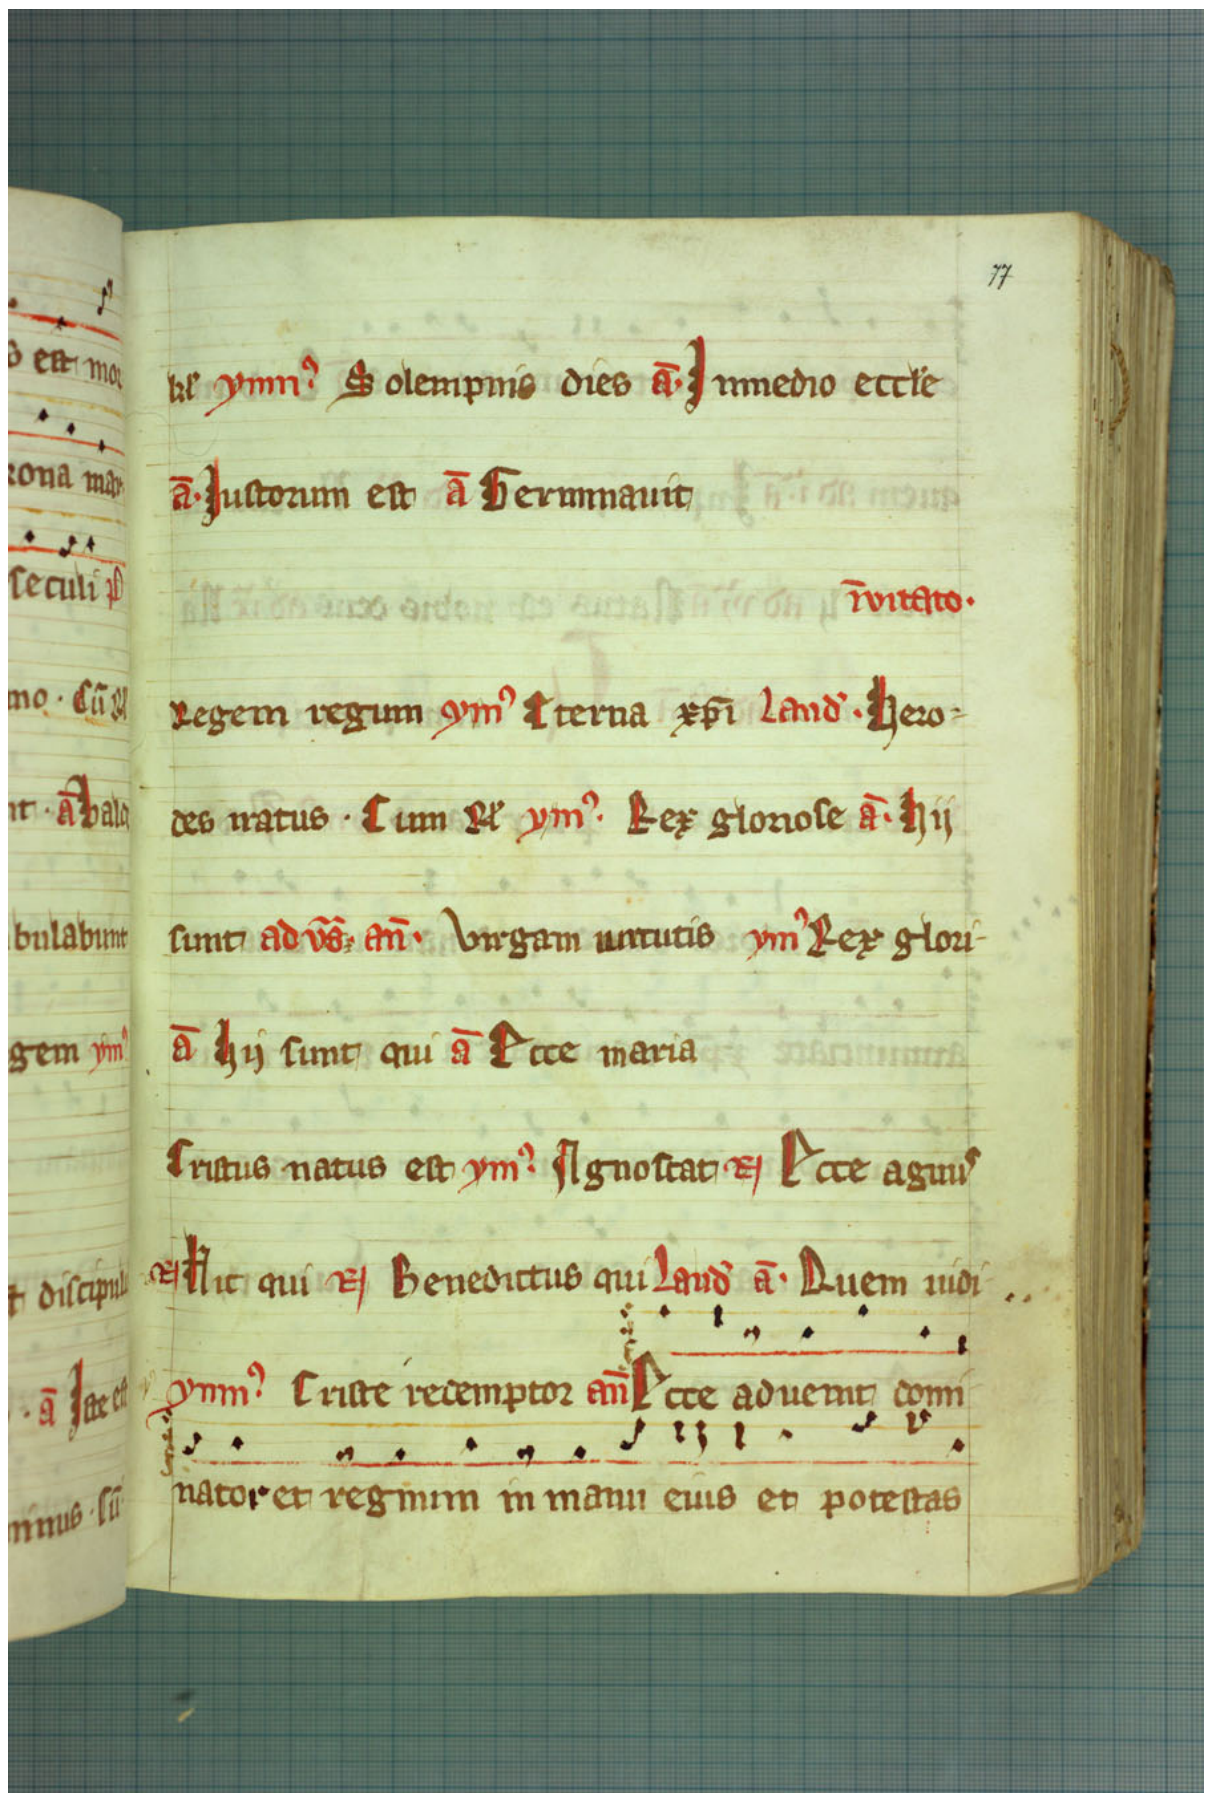 77
ymnꝰ Solempnis dies ā. Inmedio eccl̄e
ā. Iustorum est ā Germinauit
īvitato.
Regem regum ymꝰ Eterna xp̄i Laud̾. Hero-
des iratus. Cum ymꝰ. Rex gloriose ā. Hij
sunt ad añ. Virgam uirtutis ymꝰ Rex glori-
ā Hij sunt qui ā Ecce maria
Cristus natus est ymꝰ. Agnoscat ℞ Ecce agnus
℞ Hic qui ℞ Benedictus qui Laud̾ ā. Quem uidi
ymnꝰ. Criste redemptor añ Ecce aduenit domi
nator et regnum in manu eius et potestas
o est mor
rona mar
seculi
mo. Cū
nt. ā
bulabunt
gem ymꝰ
t discipulu
. ā Iste est
minus. Sū